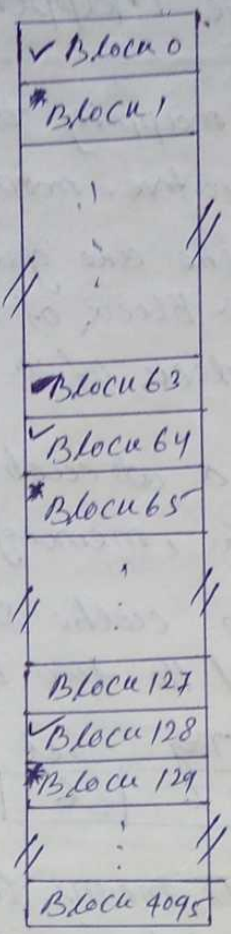 ✓ Block 0
* Block 1
Block 63
✓ Block 64
* Block 65
Block 127
✓ Block 128
* Block 129
Block 4095